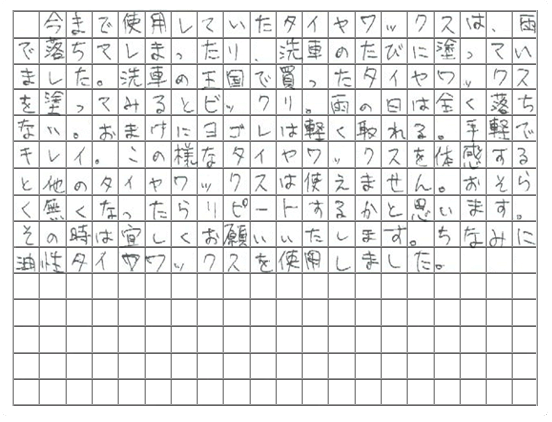 今まで使用していたタイヤワックスは、雨
で落ちてしまったり、洗車のたびに塗ってい
ました。洗車の王国で買ったタイヤワックス
を塗ってみるとビックリ。雨の日は全く落ち
ない。おまけにヨゴレは軽く取れる。手軽で
キレイ。この様なタイヤワックスを体感する
と他のタイヤワックスは使えません。おそら
く無くなったらリピートするかと思います。
その時は宜しくお願いいたします。ちなみに
油性タイヤワックスを使用しました。